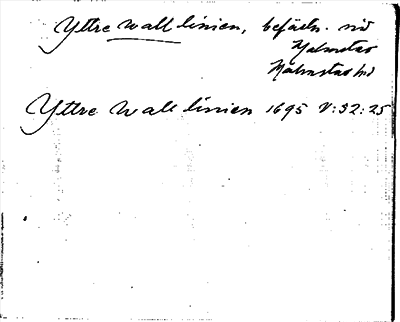 Yttre wall linien, befästn. vid
Halmstad
Halmstad hd
Yttre Wall linien 1695 V:32:25